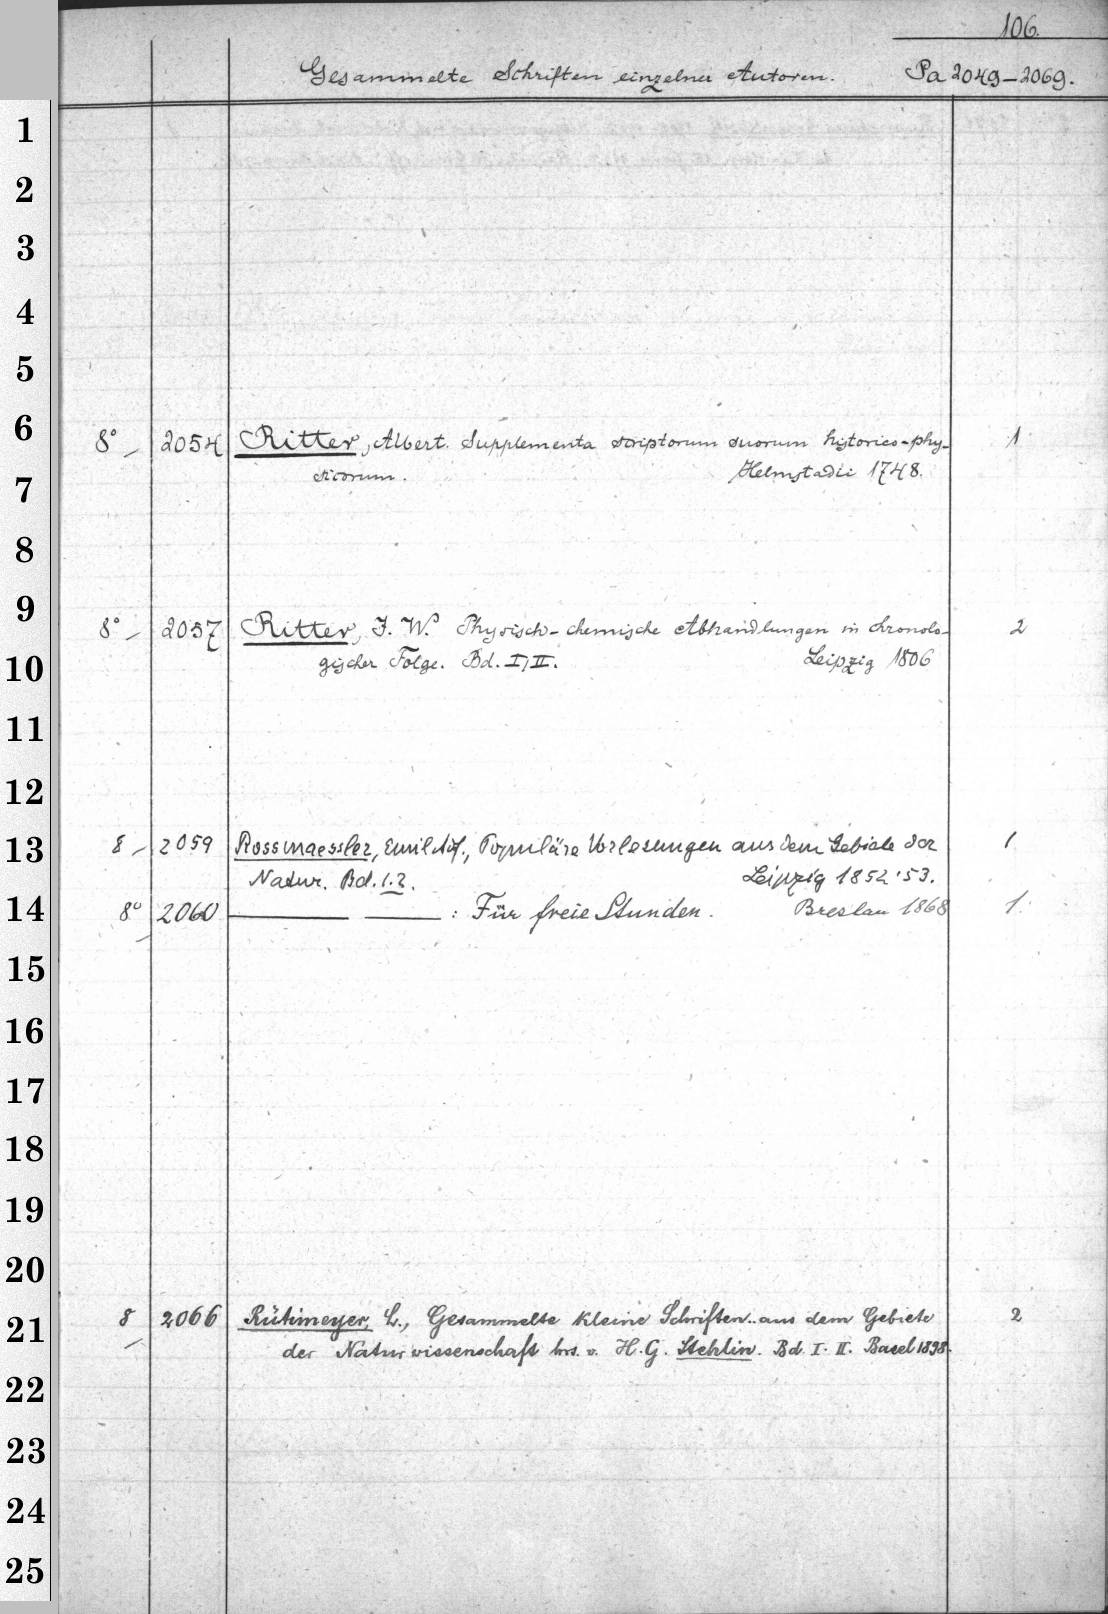 106.
Gesammelte Schriften einzelner Autoren. Pa 2049-2069.
1
2
3
4
5
6
8° 2054 Ritter, Albert. Supplementa scriptorum suorum historico-phy-
7
sicorum. Helmstadii 1748.
1
8
9
8° 2057 Ritter, J. W. Physisch-chemische Abhandlungen in chronolo-
2
10
gischer Folge. Bd. I, II. Leipzig 1806
11
12
13
8 2059 Rossmaessler, Emil Ad., Populäre Vorlesungen aus dem Gebiete der
1
Natur. Bd. 1.2. Leipzig 1852 '53.
14
8° 2060 : Für freie Stunden. Breslau 1868
1.
15
16
17
18
19
20
21
8 2066 Rütimeyer, L., Gesammelte kleine Schriften.. aus dem Gebiete
2
der Naturwissenschaft hrs. v. H. G. Stehlin. Bd I. II. Basel 1898.
22
23
24
25